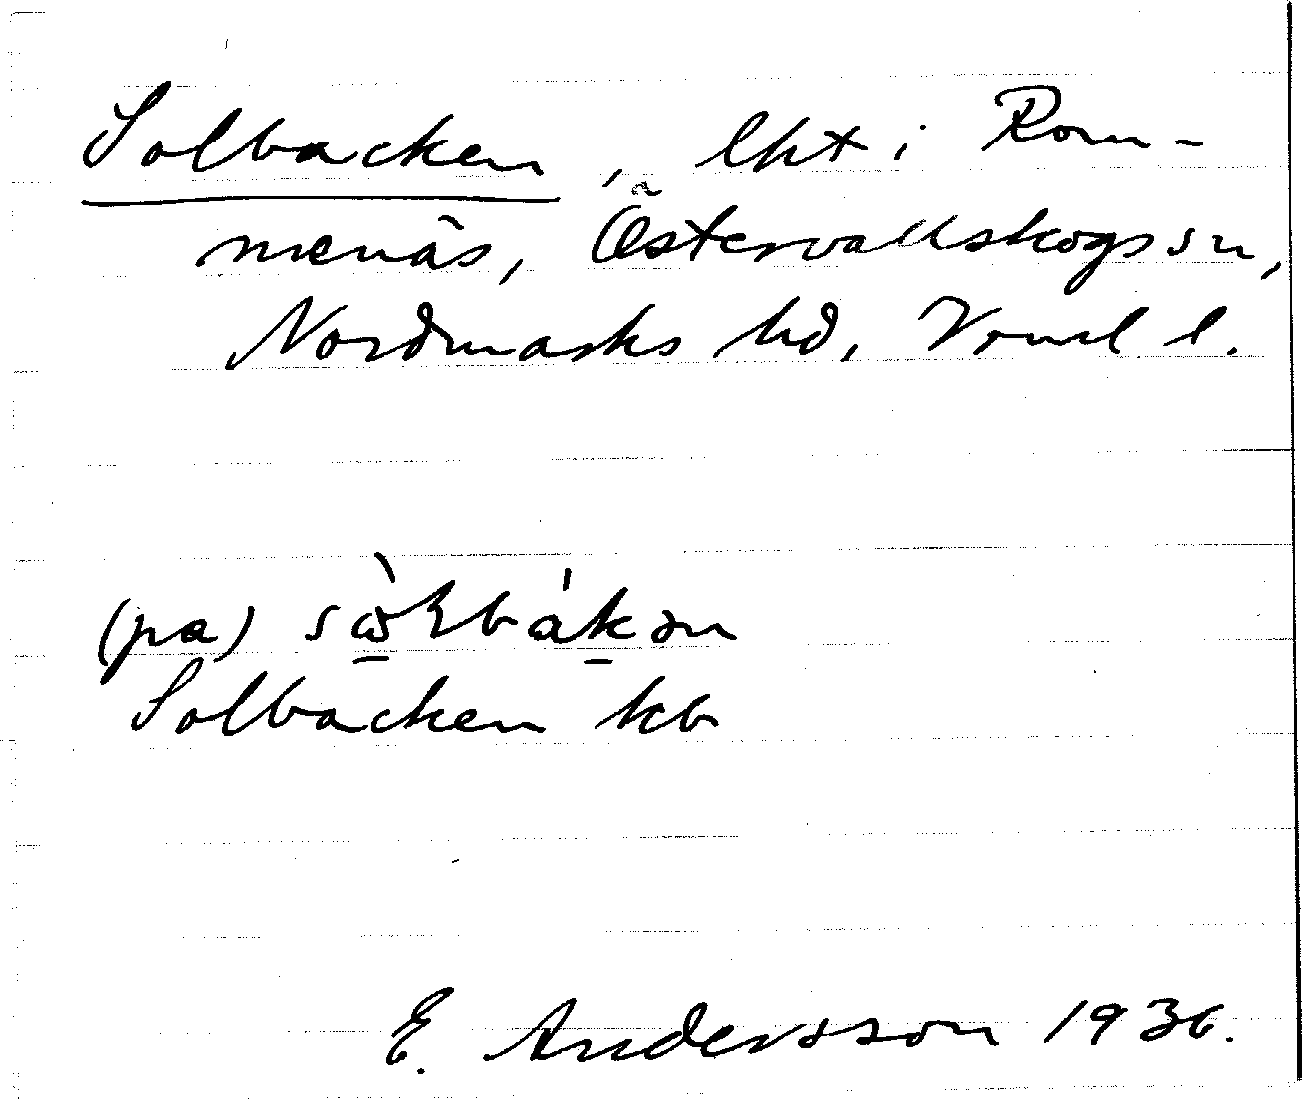 Solbacken, lht i Rom-
menäs, Östervallskogs sn,
Nordmarks hd, Vrml l.
(pa)
Solbacken kb
E. Andersson 1936.